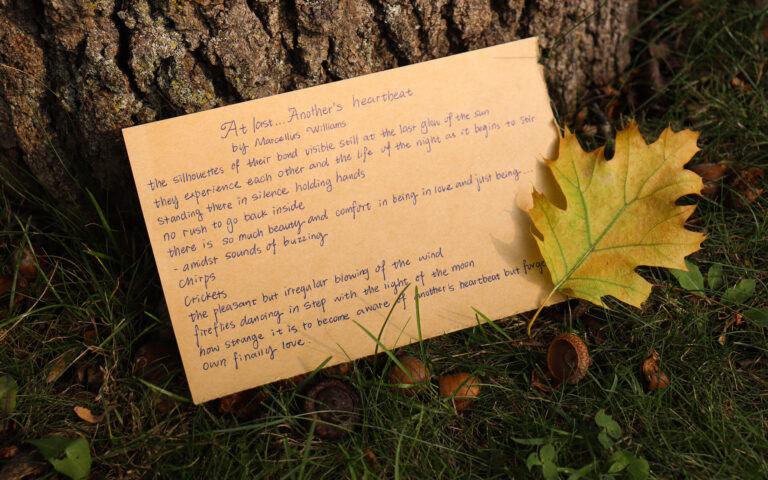 At last... Another's heartbeat
by Marcellus Williams
the silhouettes of their bond visible still at the last glow of the sun
they experience each other and the life of the night as it begins to stir
standing there in silence holding hands
no rush to go back inside
there is so much beauty and comfort in being in love and just being...
- amidst sounds of buzzing
chirps
crickets
the pleasant but irregular blowing of the wind
fireflies dancing in step with the light of the moon
how strange it is to become aware of another's heartbeat but forge
own finally love.